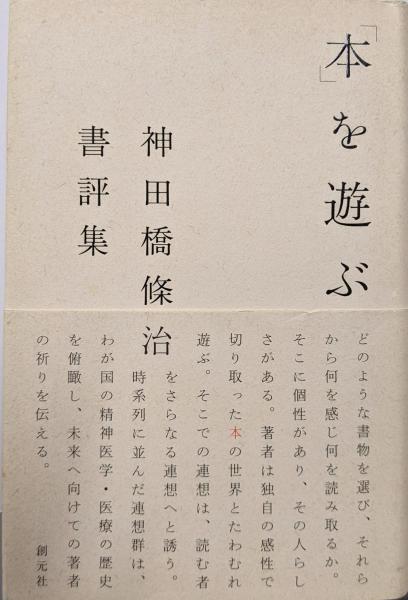 「本」を遊ぶ
神田橋條治
書評集
どのような書物を選び、それら
から何を感じ何を読み取るか。
そこに個性があり、その人らし
さがある。著者は独自の感性で
切り取った本の世界とたわむれ
遊ぶ。そこでの連想は、読む者
をさらなる連想へと誘う。
時系列に並んだ連想群は、
わが国の精神医学・医療の歴史
を俯瞰し、未来へ向けての著者
の祈りを伝える。
創元社